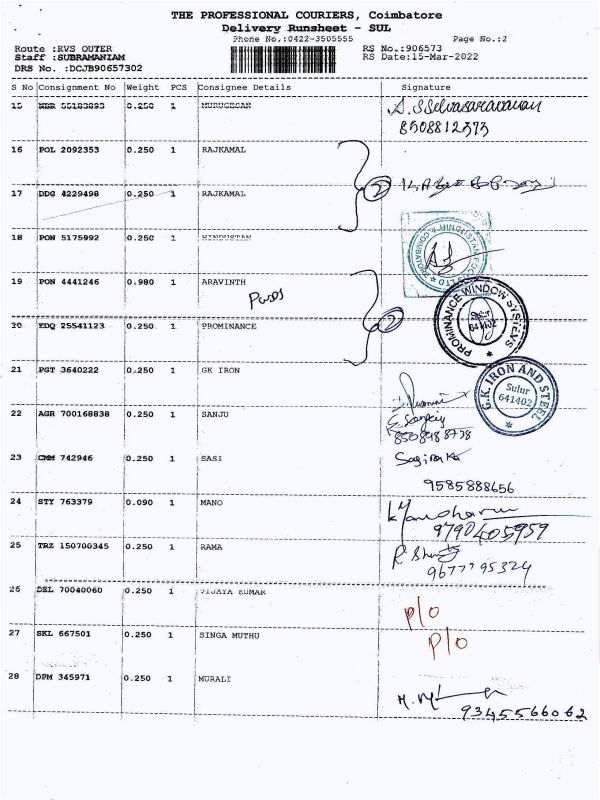 THE PROFESSIONAL COURIERS, Coimbatore
Delivery Runsheet - SUL
Phone No.:0422-3505555 Page No.:2
Route :RVS OUTER RS No.:906573
Staff :SUBRAMANIAM RS Date:15-Mar-2022
DRS No. :DCJB90657302
S No Consignment No Weight PCS Consignee Details Signature
15 0.250 1 MURUGESAN A. S Selvasaravanan
8508812373
16 POL 2092353 0.250 1 RAJKAMAL
17 DDG 4229498 0.250 1 RAJKAMAL 2
18 PON 5175992 0.250 1 HINDUSTAN
19 PON 4441246 0.980 1 ARAVINTH
20 EDQ 25541123 0.250 1 PROMINANCE 2
PROMINANCE WINDOW SYSTEMS
Sulur
641402
21 PGT 3640222 0.250 1 GK IRON
G.K. IRON AND STEEL
Sulur
641402
22 AGR 700168838 0.250 1 SANJU
8508488778
23 CMM 742946 0.250 1 SASI
9585888656
24 STY 763379 0.090 1 MANO
9790405959
25 TRZ 150700345 0.250 1 RAMA
9677795324
26 DEL 70040060 0.250 1 VIJAYA KUMAR P/O
27 SKL 667501 0.250 1 SINGA MUTHU P/O
28 DPM 345971 0.250 1 MURALI
9345566062